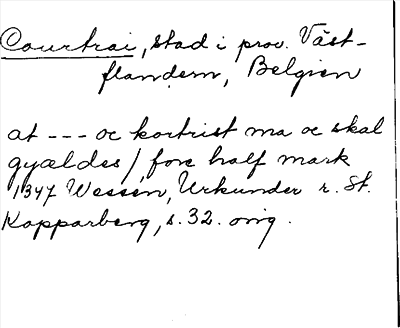 Courtrai, stad i prov. Väst-
flandern, Belgien
at --- oc kortrist ma oc skal
gyældes/, fore half mark
1347 Wessén, Urkunder r. St.
Kopparberg, s. 32. orig.